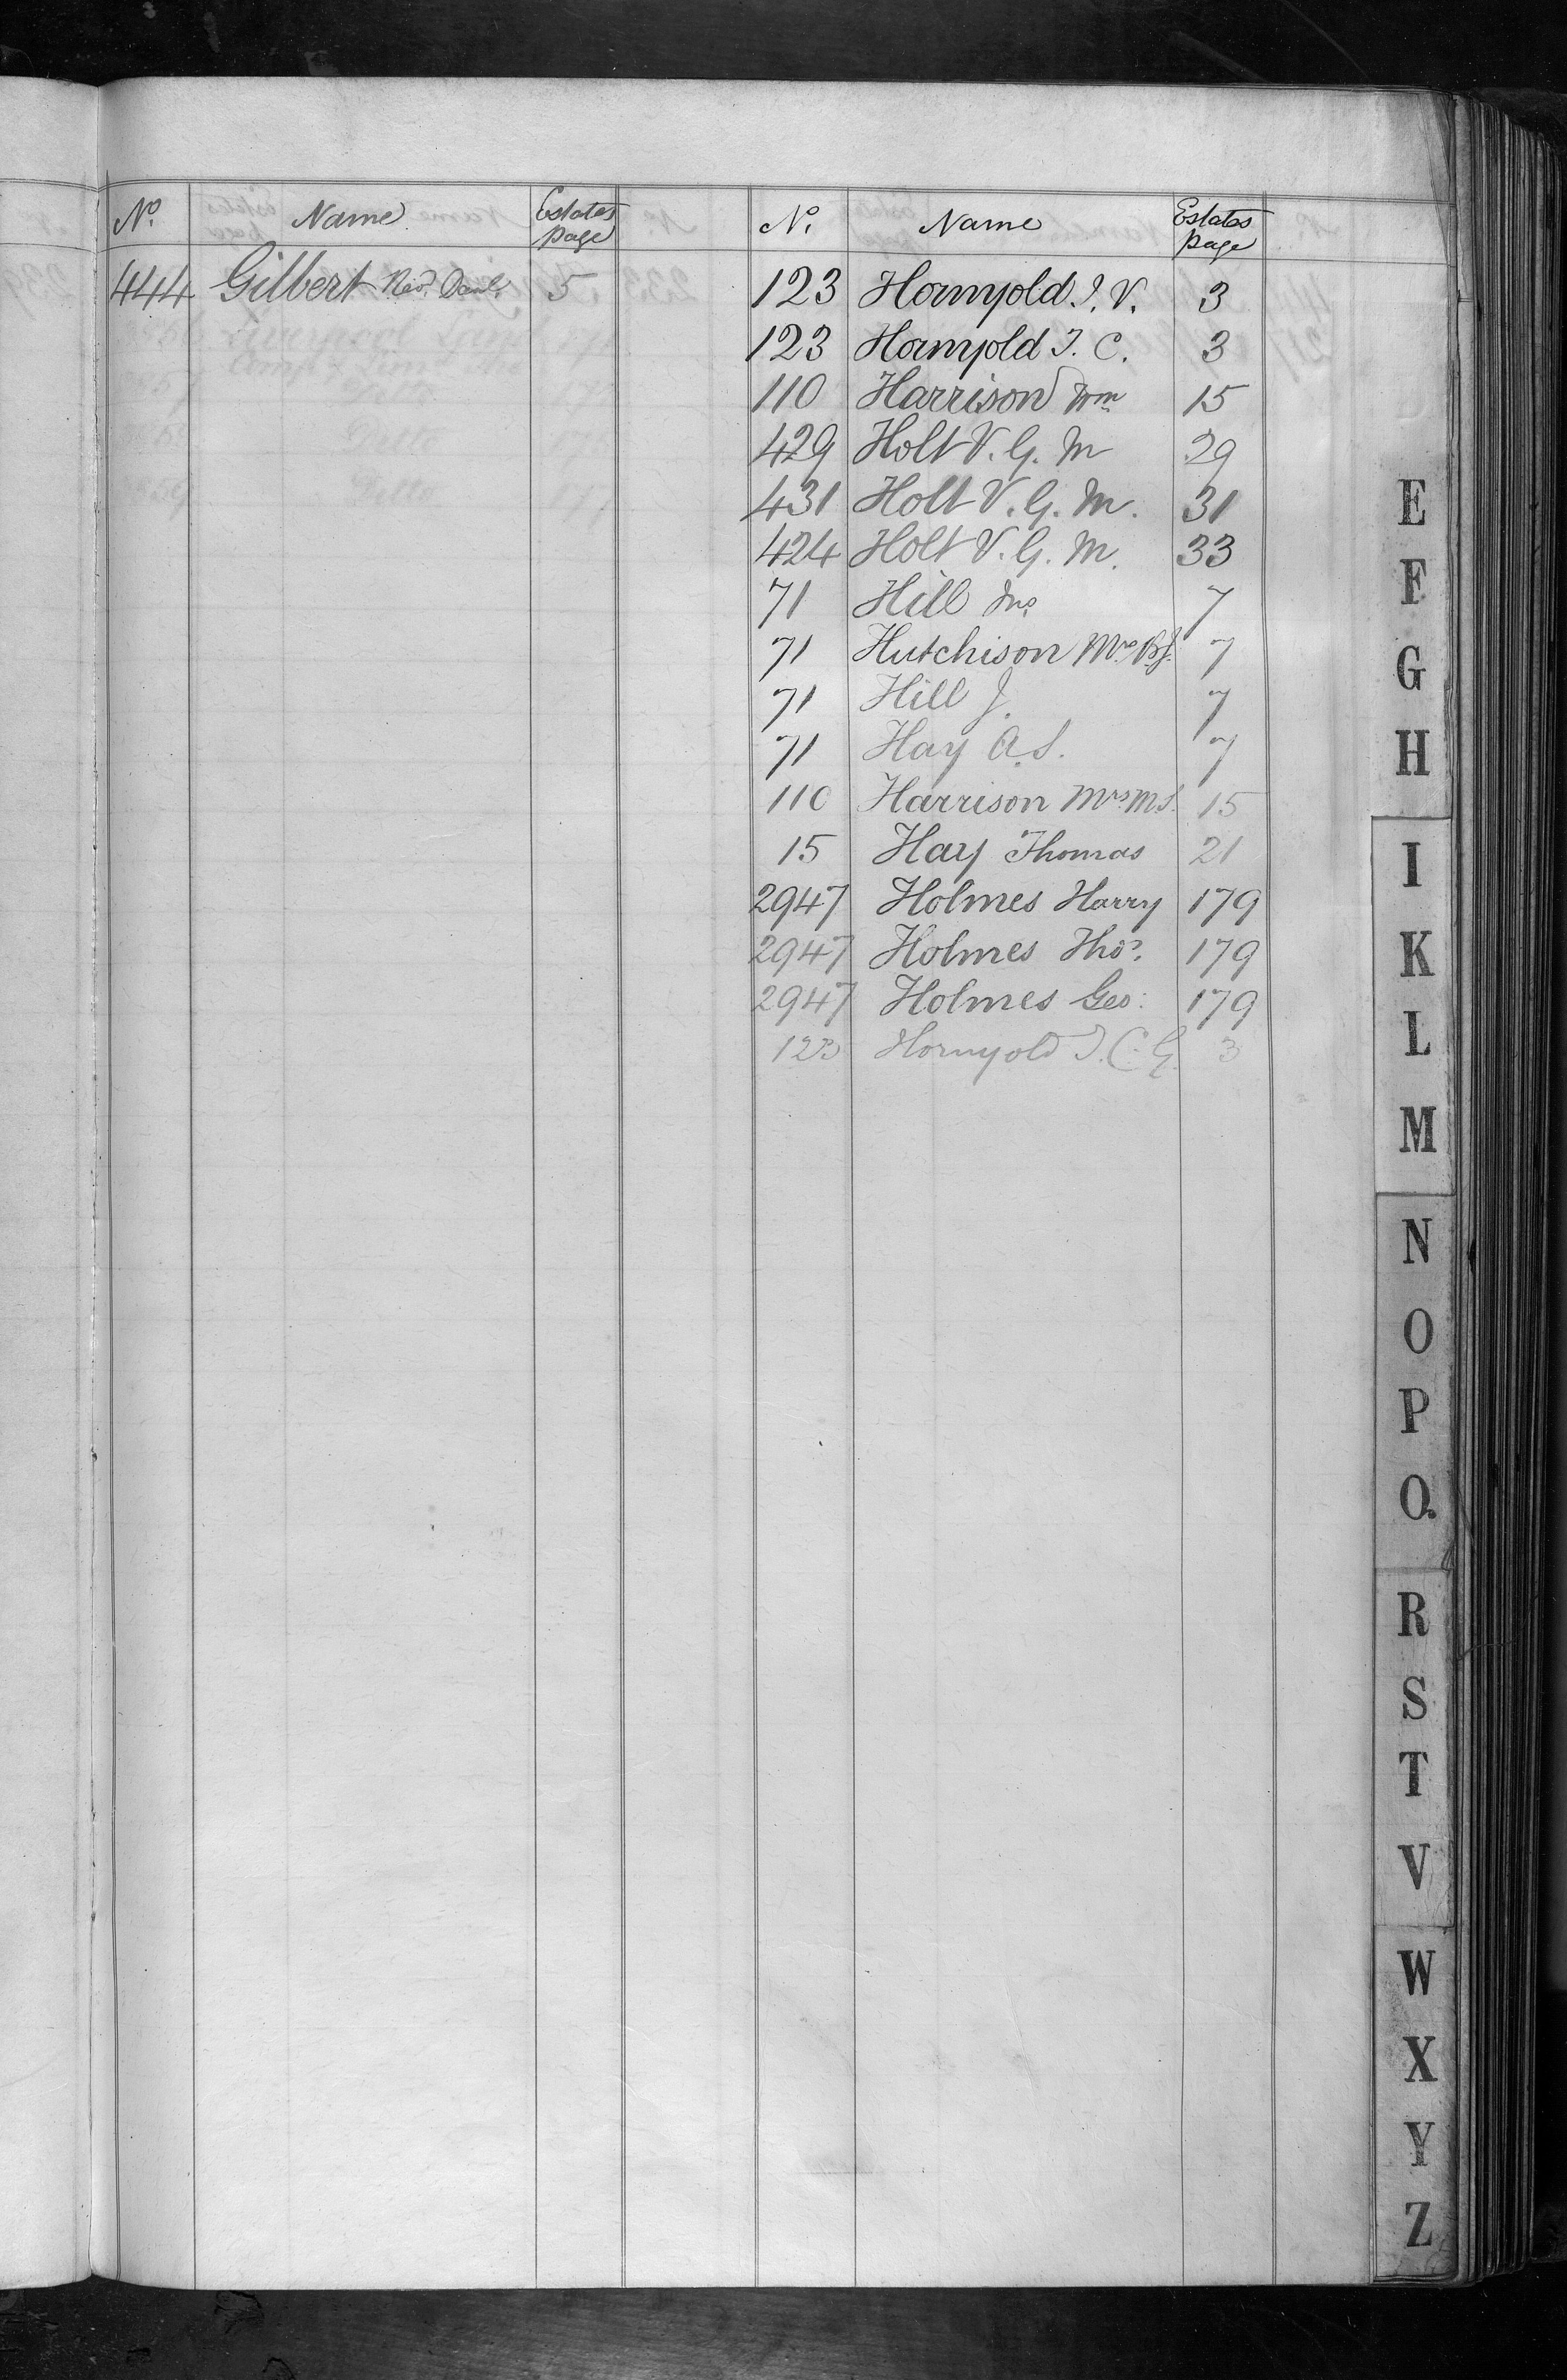 No. Name Estates page
444 Gilbert Revd. Danl. 5
No. Name Estates page
123 Hornyold J. V. 3
123 Hornyold T. C. 3
110 Harrison Wm 15
429 Holt V. G. M 29
431 Holt V. G. M. 31
424 Holt V. G. M. 33
71 Hill Jno 7
71 Hutchison Mrs 7
71 Hill J. 7
71 Hay A.S. 7
110 Harrison Mrs M.S. 15
15 Hay Thomas 21
2947 Holmes Harry 179
2947 Holmes Thos. 179
2947 Holmes Geo: 179
123 Hornyold T. C. G. 3
E
F
G
H
I
K
L
M
N
O
P
Q.
R
S
T
V
W
X
Y
Z